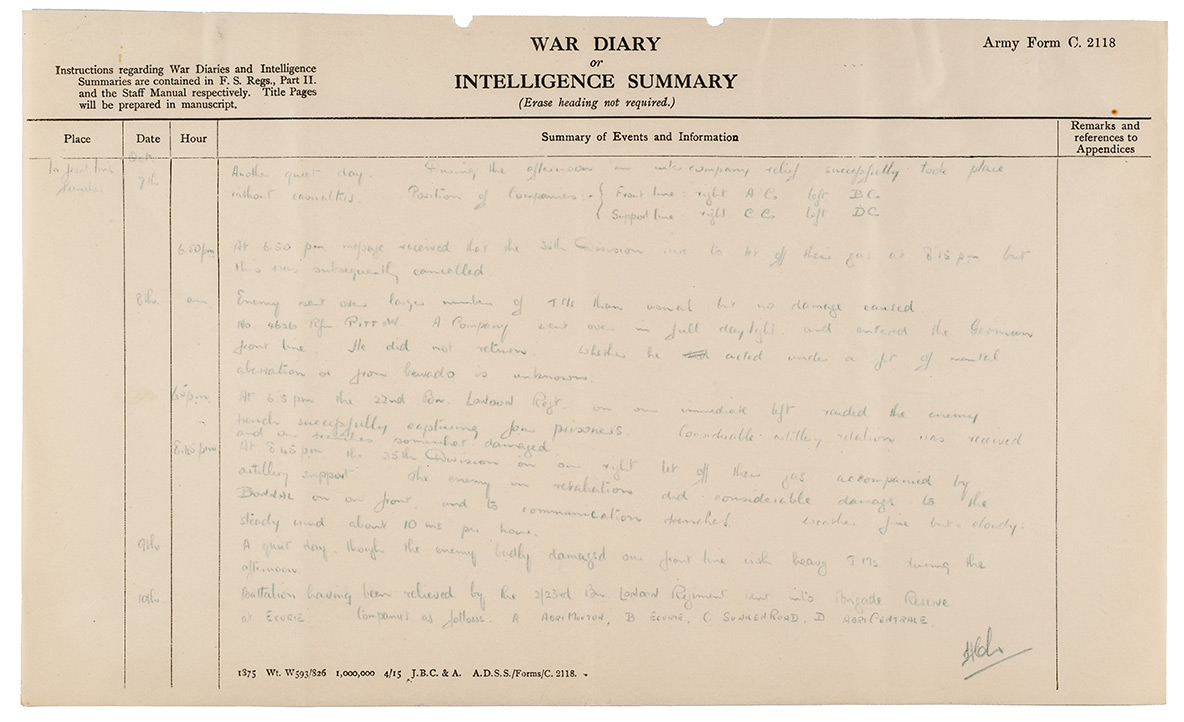 WAR DIARY
or
INTELLIGENCE SUMMARY
(Erase heading not required.)
Army Form C. 2118
Instructions regarding War Diaries and Intelligence
Summaries are contained in F. S. Regs., Part II.
and the Staff Manual respectively. Title Pages
will be prepared in manuscript.
Place Date Hour Summary of Events and Information Remarks and references to Appendices
In front line trenches
Oct.
7th Another quiet day. During the afternoon an inter company relief successfully took place
without casualties. Position of Companies:- { Front line: right A Co left B Co
{ Support line right C Co left D C
6.50pm At 6.50 pm message received that the 35th Division were to let off their gas at 8.15 pm but
this was subsequently cancelled.
8th am Enemy sent over larger number of TMs than usual but no damage caused.
No. 4626 Rfn PITT W. A Company went over in full daylight and entered the German
front line. He did not return. Whether he acted under a fit of mental
aberration or from bravado is unknown.
6.5 pm At 6.5 pm the 22nd Bn. LONDON Regt. on our immediate left raided the enemy
trench successfully capturing four prisoners. Considerable artillery was received
and our trenches somewhat damaged
8.45 pm At 8.45 pm the 35th Division on our right let off their gas accompanied by
artillery support. The enemy in retaliation did considerable damage to the
BONNAL on our front, and to communication trenches. Weather fine but cloudy.
steady wind about 10 ms per hour.
9th A quiet day though the enemy badly damaged our front line with heavy TMs during the
afternoon
10th Battalion having been relieved by the 2/23rd Bn London Regiment went into Brigade Reserve
at ECURIE. Companies as follows. A ABRI MOUTON, B ECURIE, C SUNKEN ROAD, D ABRI CENTRALE.
1875 Wt. W593/826 1,000,000 4/15 J.B.C. & A. A.D.S.S./Forms/C. 2118.